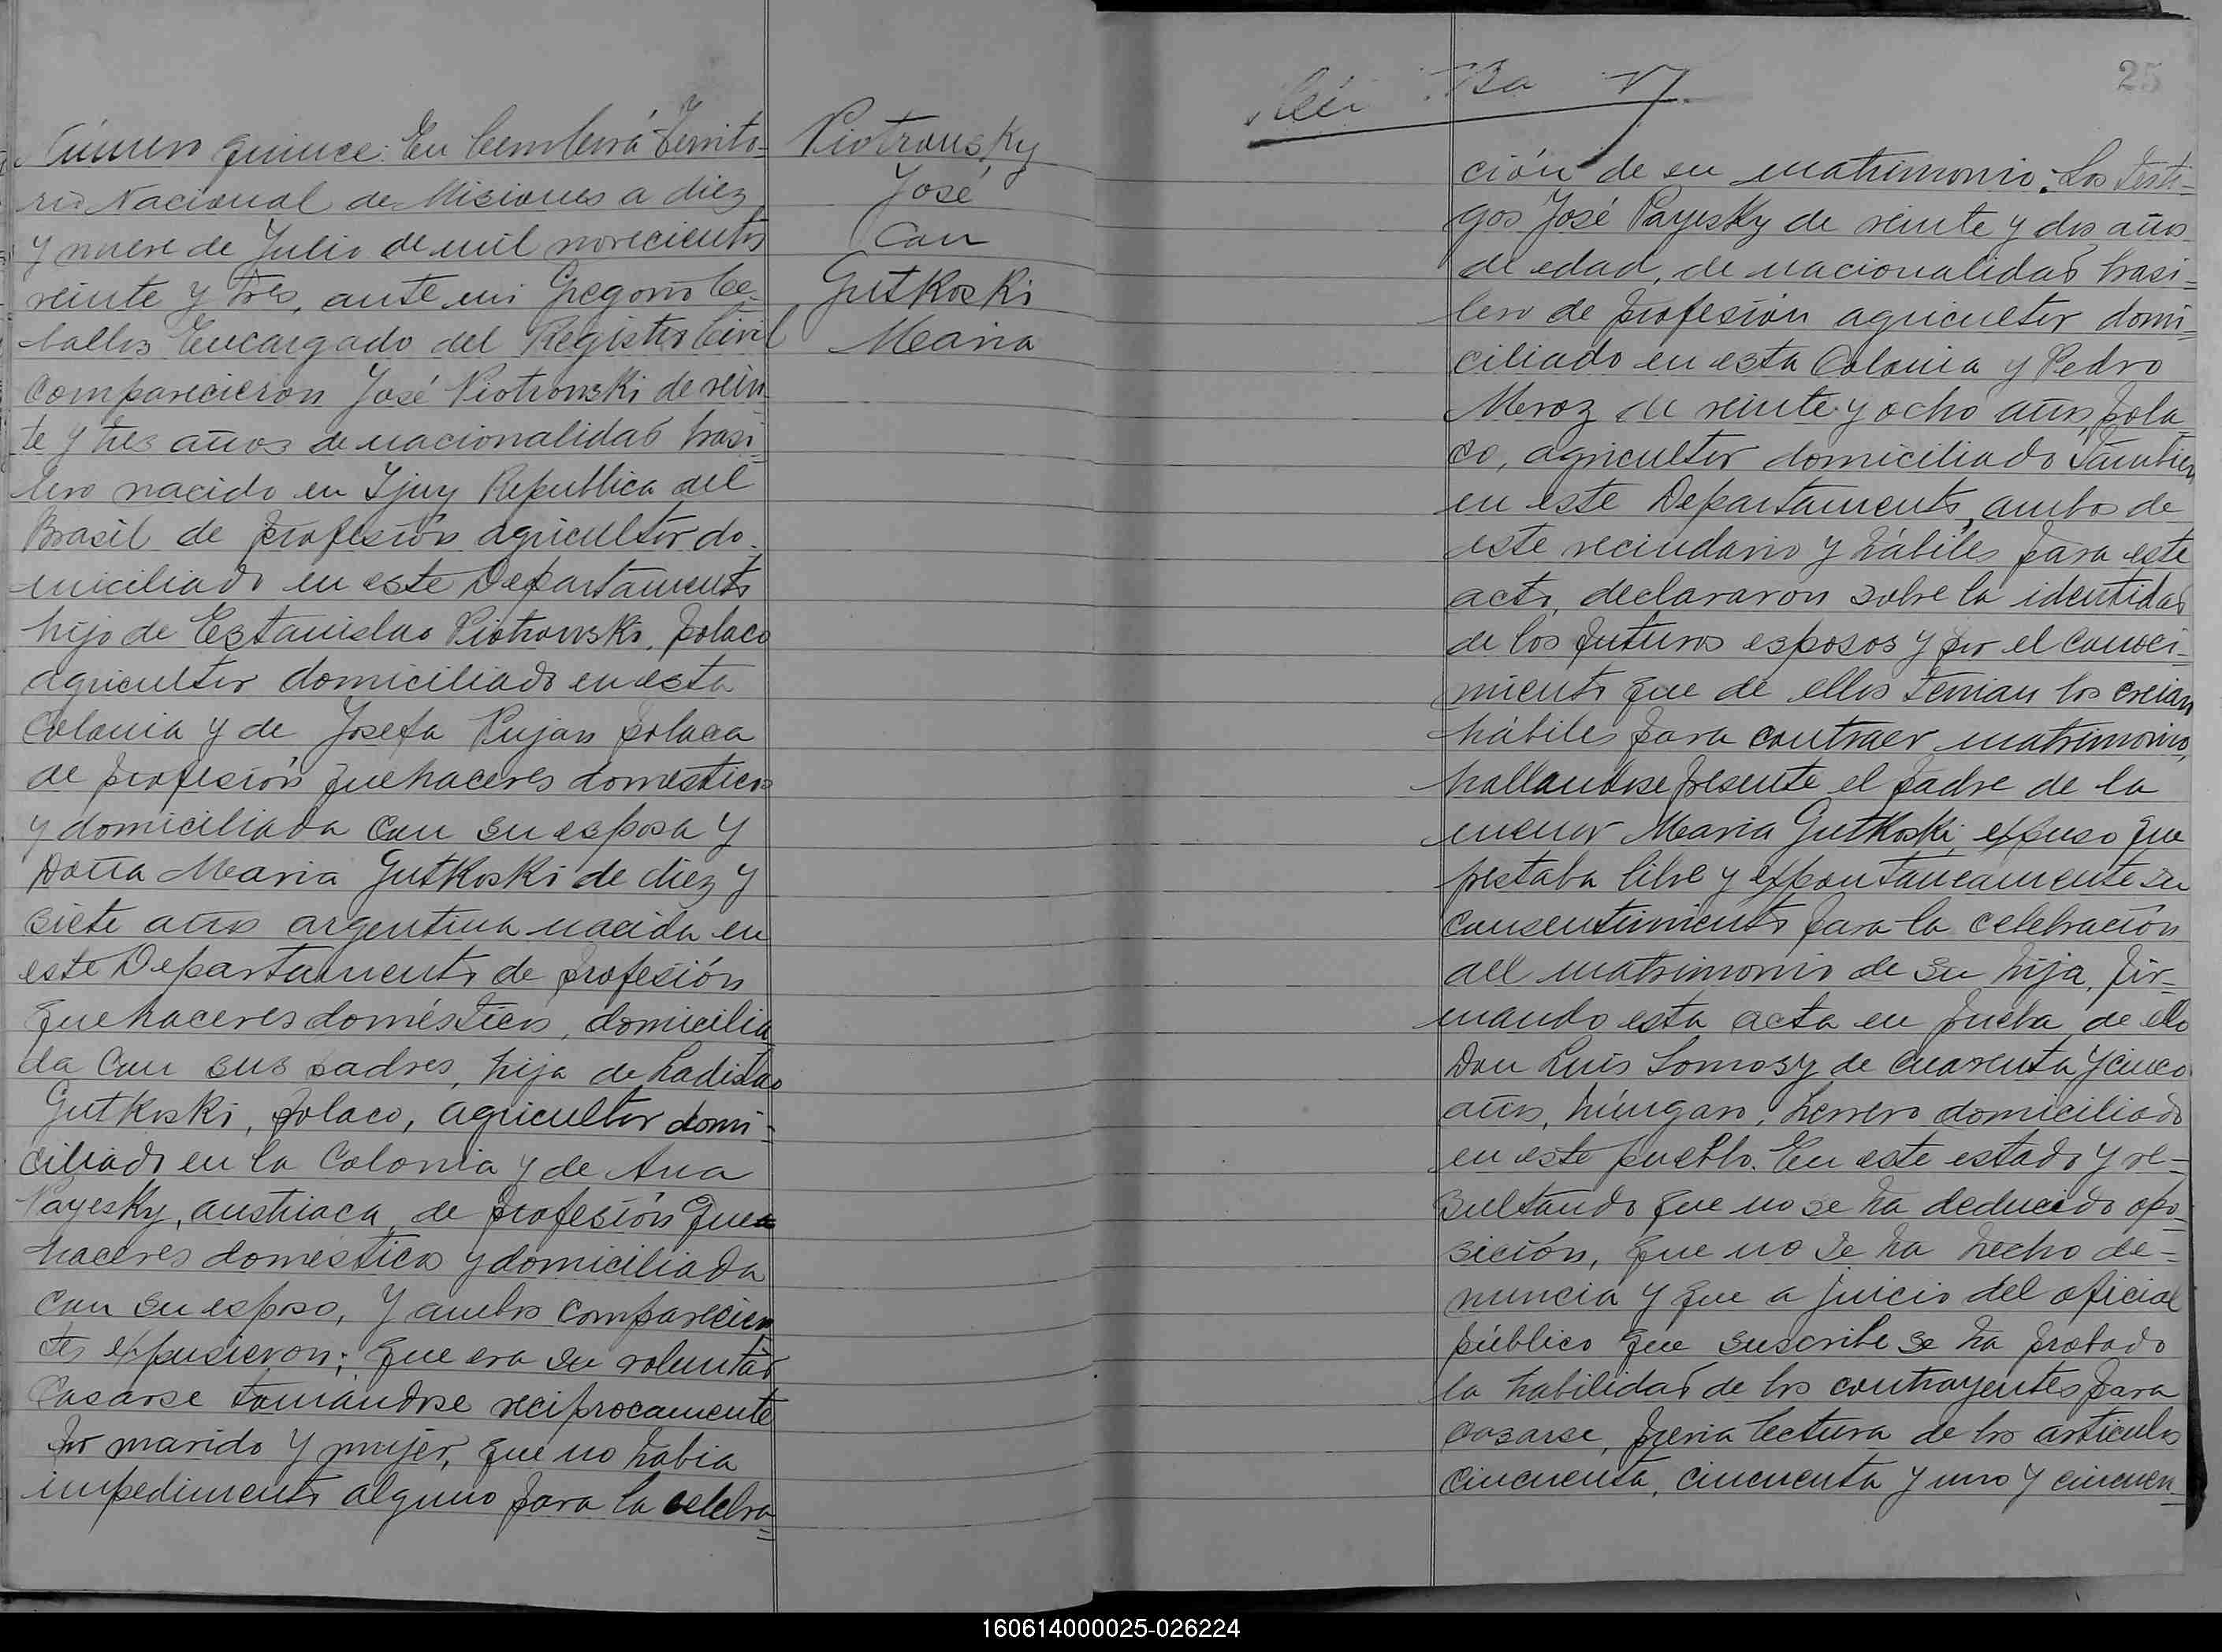 Número quince: En Cerro Corá Territo-
rio Nacional de Misiones a diez
y nueve de Julio de mil novecientos
veinte y tres, ante mi Gregorio Ce-
ballos Encargado del Registro Civil
comparecieron José Piotrowski de vein
te y tres años de nacionalidad brasi-
lero nacido en Ijuy Republica del
Brasil de profesión agricultor do-
miciliado en este Departamento
hijo de Estanislao Piotrowski, polaco
agricultor domiciliado en esta
Colonia y de Josefa Pujan polaca
de profesión quehaceres domesticos
y domiciliada con su esposa y
Doña Maria Gutkoski de diez y
siete años argentina nacida en
este Departamento de profesión
quehaceres domésticos, domicilia
da con sus padres, hija de Ladislao
Gutkoski, polaco, agricultor domi-
ciliado en la Colonia y de Ana
Payesky, austriaca, de profesión que
haceres domesticos y domiciliada
con su esposo, y ambos comparecien
tes expusieron; que era su voluntad
casarse tomándose reciprocamente
por marido y mujer, que no habia
impedimento alguno para la celebra=
Piotrousky
José
Con
Gutkoski
Maria
25
ción de su matrimonio. Los Testi-
gos José Payesky de veinte y dos años
de edad, de nacionalidad brasi-
lero de profesión agricultor domi-
ciliado en esta Colonia y Pedro
Meroz de veinte y ocho años, pola
co, agricultor domiciliado tambien
en este Departamento, ambos de
este vecindario y hábiles para este
acto, declararon sobre la identidad
de los futuros esposos y por el conoci-
miento que de ellos tenian los creian
hábiles para contraer matrimonio,
hallandose presente el padre de la
menor Maria Gutkoski, expuso que
prestaba libre y expontaneamente su
consentimiento para la celebración
del matrimonio de su hija, fir-
mando esta acta en prueba de ello
Don Luis Somosy de cuarenta y cinco
años, húngaro, herrero domiciliado
en este pueblo. En este estado y re-
sultando que no se ha deducido opo-
sición, que no se ha hecho de-
nuncia y que a juicio del oficial
público que suscribe se ha probado
la habilidad de los contrayentes para
casarse, previa lectura de los articulos
cincuenta, cincuenta y uno y cincuen-
160614000025-026224